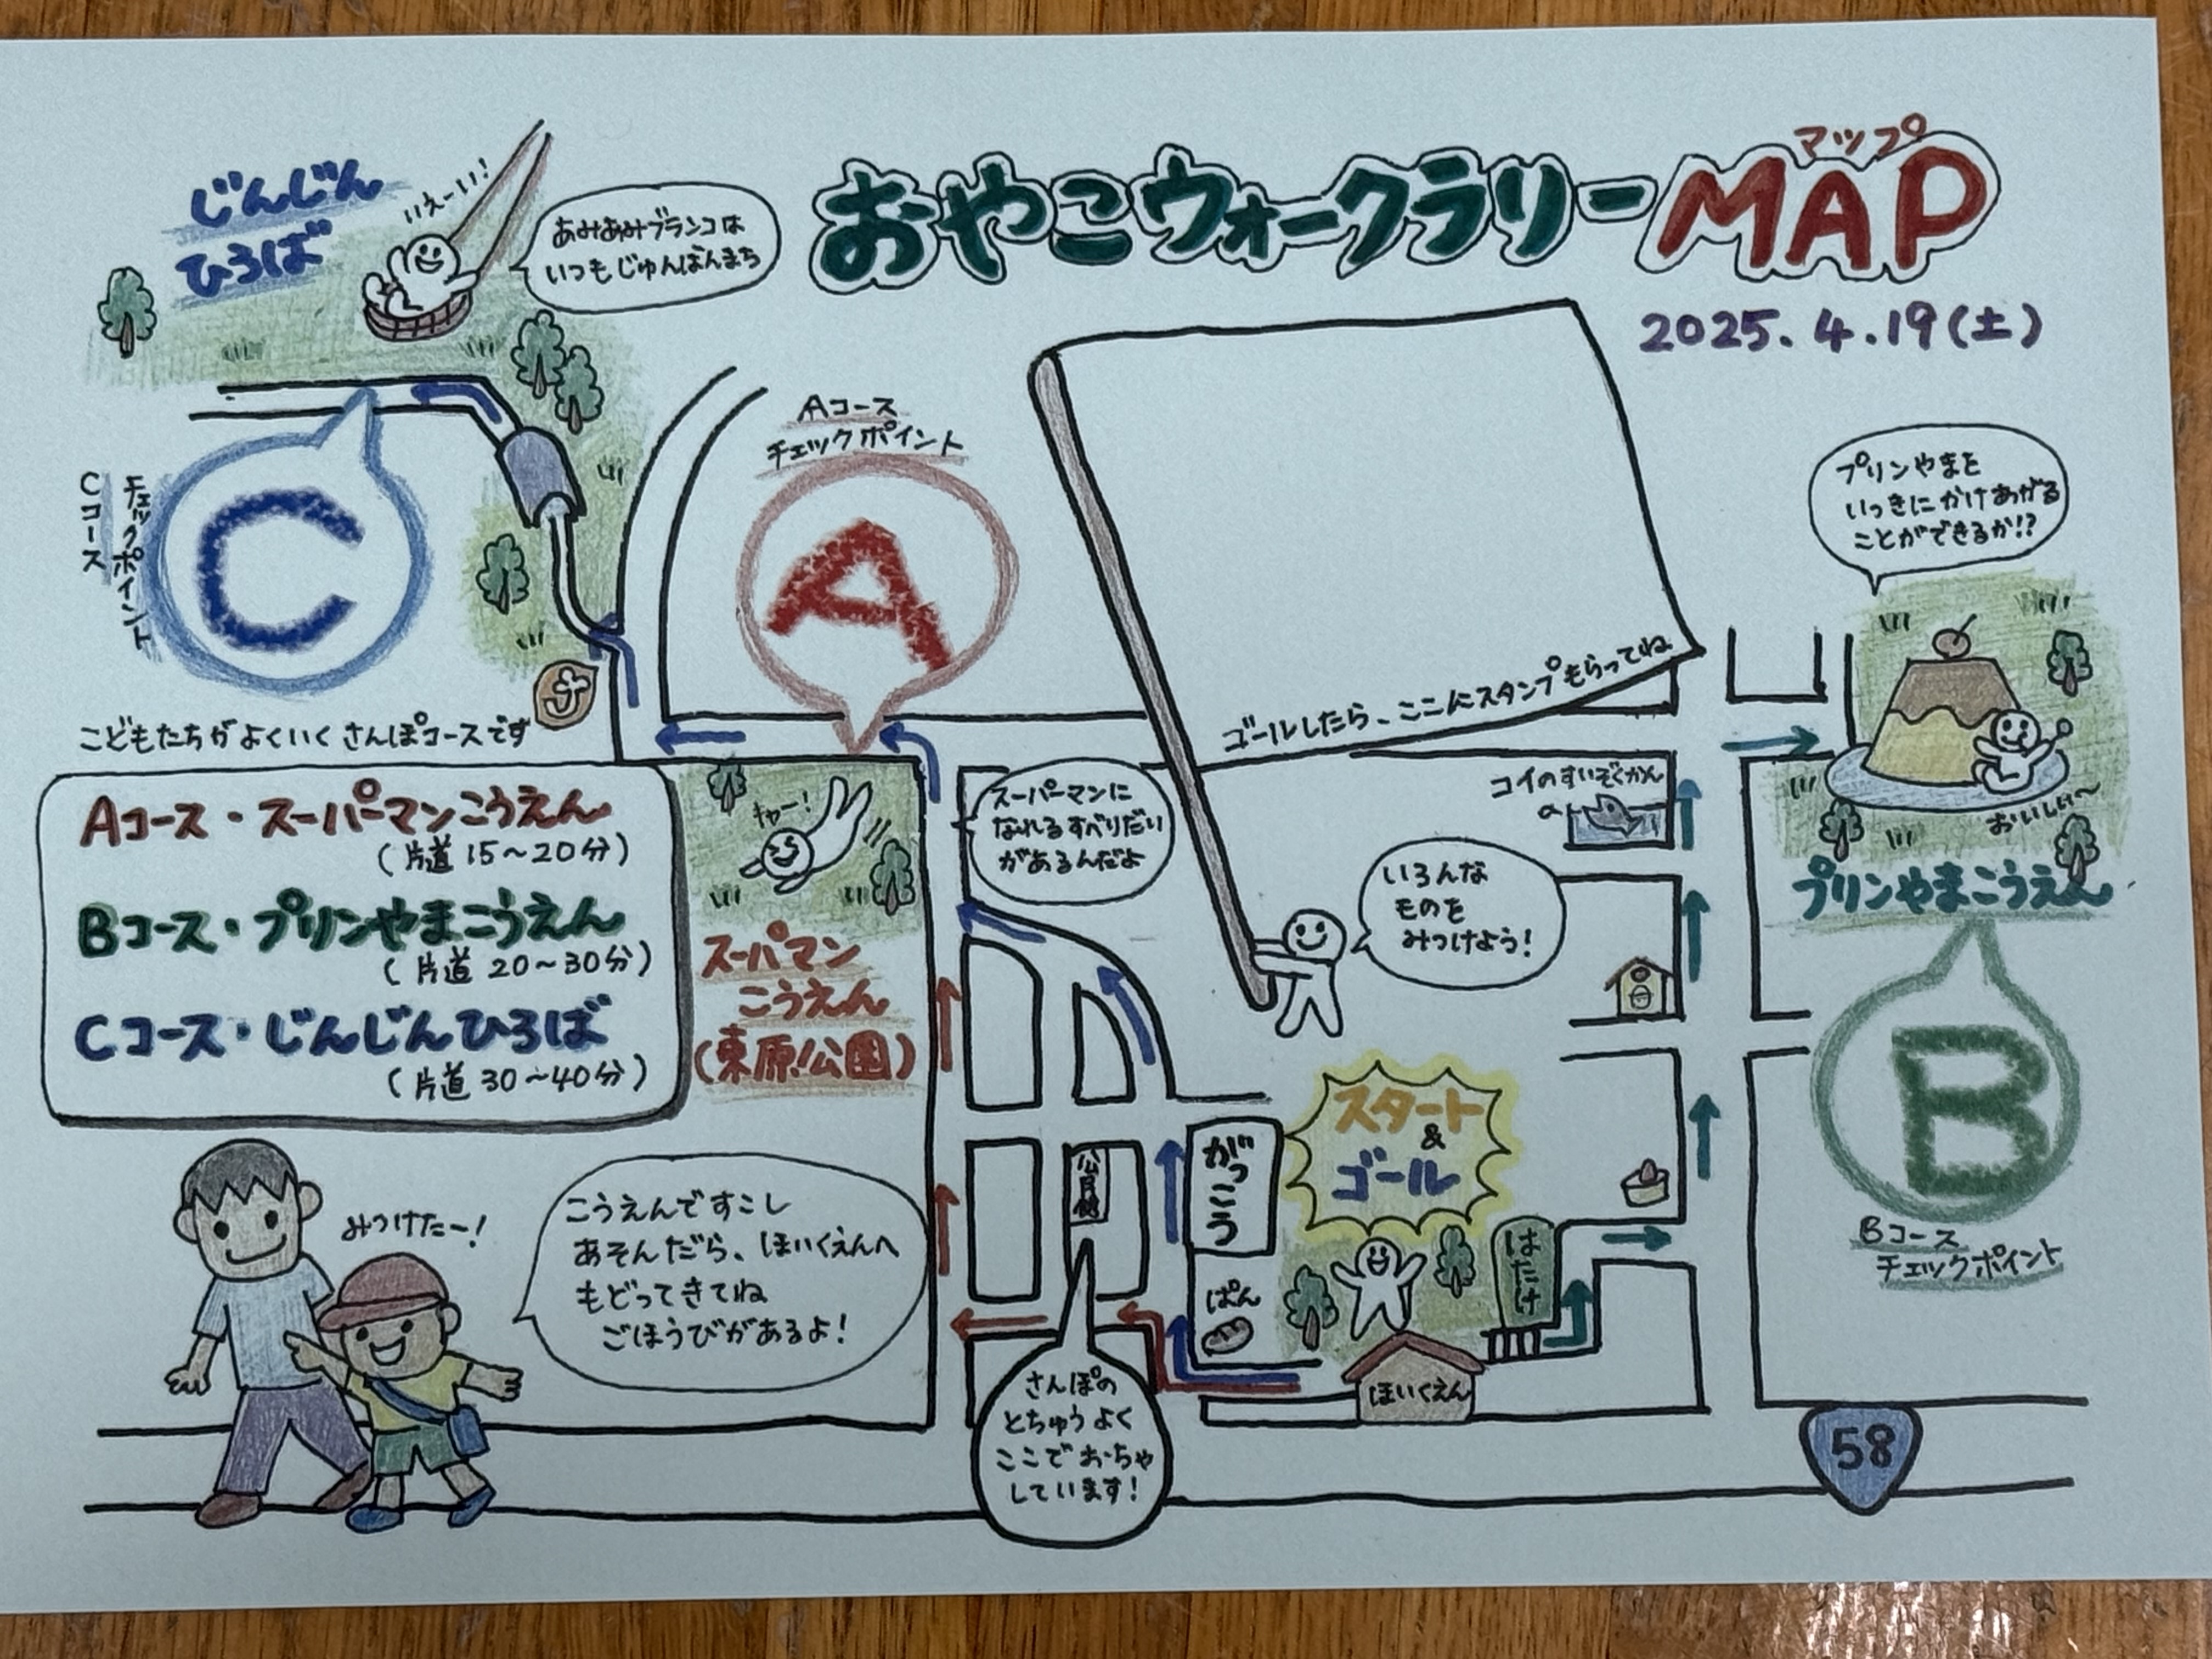 じんじん
ひろば
いえーい!
あみあみブランコは
いつもじゅんばんまち
おやこウォークラリーMAP
マップ
2025.4.19(土)
Cコース
チェックポイント
C
Aコース
チェックポイント
A
ゴールしたら、ここにスタンプもらってね
プリンやまを
いっきにかけあがる
ことができるか!?
おいしい〜
プリンやまこうえん
B
Bコース
チェックポイント
こどもたちがよくいくさんぽコースです
Aコース・スーパーマンこうえん
(片道15〜20分)
Bコース・プリンやまこうえん
(片道20〜30分)
Cコース・じんじんひろば
(片道30〜40分)
キャー!
スーパーマンに
なれるすべりだい
があるんだよ
スーパマン
こうえん
(東原公園)
コイのすいぞくかん
いろんな
ものを
みつけよう!
スタート
&
ゴール
がっこう
ぱん
はたけ
ほいくえん
公民館
さんぽの
とちゅうよく
ここでおちゃ
しています!
みつけたー!
こうえんですこし
あそんだら、ほいくえんへ
もどってきてね
ごほうびがあるよ!
58